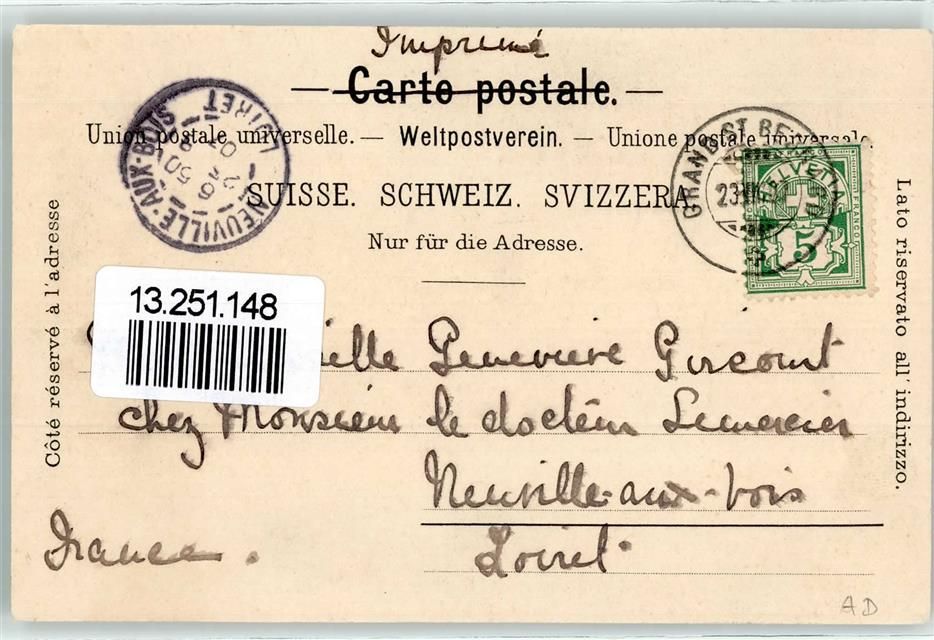 Imprimé
— Carte postale. —
Union postale universelle. — Weltpostverein. — Unione postale universale
SUISSE. SCHWEIZ. SVIZZERA.
Nur für die Adresse.
NEUVILLE-AUX-BOIS
LOIRET
GRAND ST BE
23
HELVETIA
FRANCO
5
Côté réservé à l'adresse
Lato riservato all' indirizzo.
13.251.148
Geneviève Gircourt
chez Monsieur le docteur Lemercier
Neuville-aux-bois
Loiret.
France.
AD